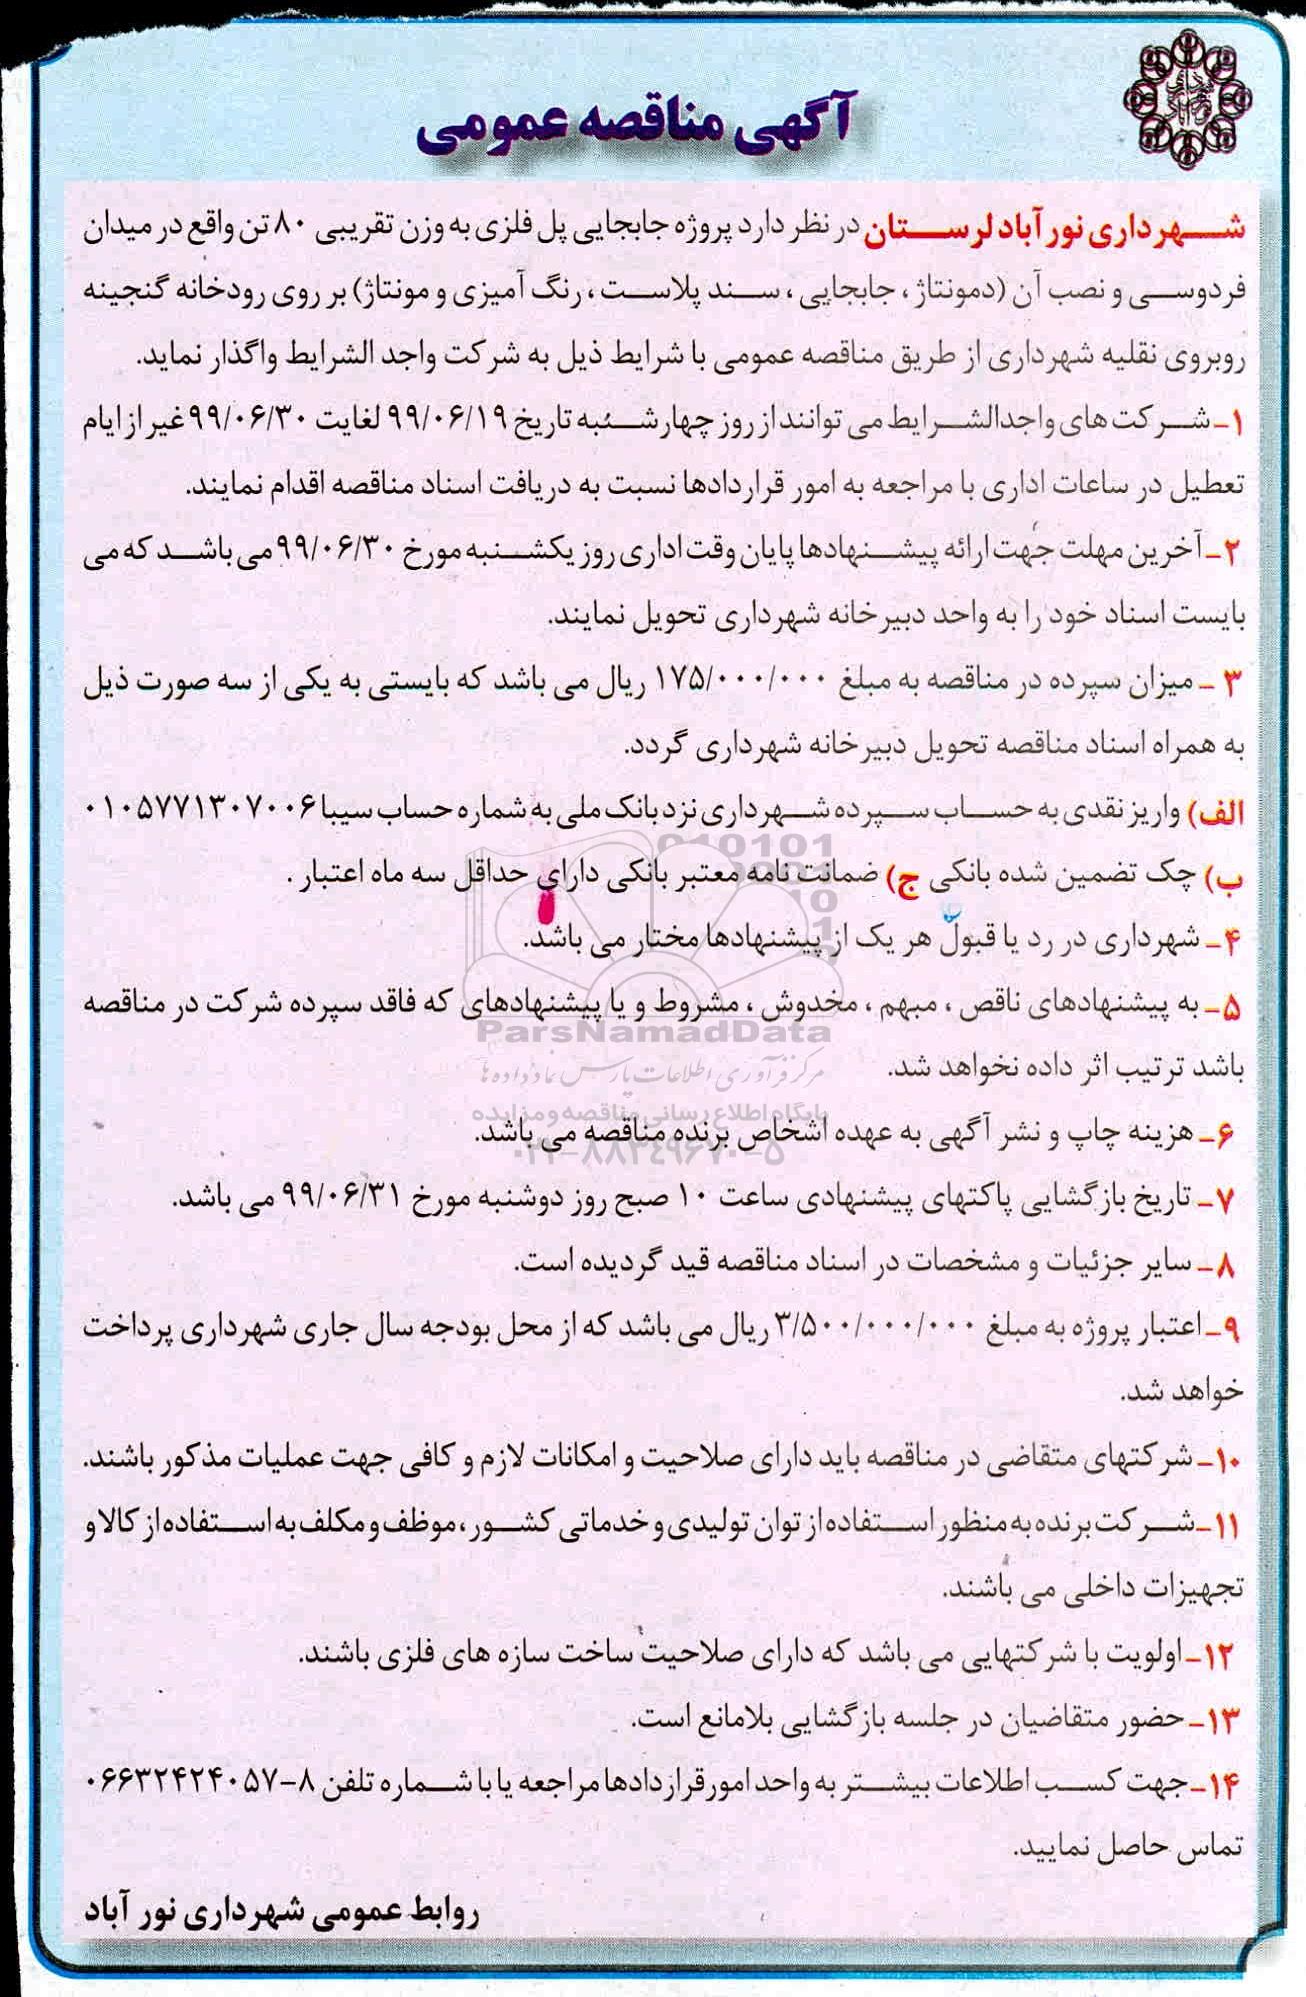 آگهی مناقصه عمومی
شهرداری نور آباد لرستان در نظر دارد پروژه جابجایی پل فلزی به وزن تقریبی ۸۰ تن واقع در میدان
فردوسی و نصب آن (دمونتاژ ، جابجایی ، سند پلاست ، رنگ آمیزی و مونتاژ) بر روی رودخانه گنجینه
روبروی نقلیه شهرداری از طریق مناقصه عمومی با شرایط ذیل به شرکت واجد الشرایط واگذار نماید.
۱ـ شرکت های واجدالشرایط می توانند از روز چهارشنبه تاریخ ۹۹/۰۶/۱۹ لغایت ۹۹/۰۶/۳۰ غیر از ایام
تعطیل در ساعات اداری با مراجعه به امور قراردادها نسبت به دریافت اسناد مناقصه اقدام نمایند.
۲ـ آخرین مهلت جهت ارائه پیشنهادها پایان وقت اداری روز یکشنبه مورخ ۹۹/۰۶/۳۰ می باشد که می
بایست اسناد خود را به واحد دبیرخانه شهرداری تحویل نمایند.
۳ ـ میزان سپرده در مناقصه به مبلغ ۱۷۵/۰۰۰/۰۰۰ ریال می باشد که بایستی به یکی از سه صورت ذیل
به همراه اسناد مناقصه تحویل دبیرخانه شهرداری گردد.
الف) واریز نقدی به حساب سپرده شهرداری نزد بانک ملی به شماره حساب سیبا ۰۱۰۵۷۷۱۳۰۷۰۰۶
ب) چک تضمین شده بانکی ج) ضمانت نامه معتبر بانکی دارای حداقل سه ماه اعتبار .
۴ـ شهرداری در رد یا قبول هر یک از پیشنهادها مختار می باشد.
۵ـ به پیشنهادهای ناقص ، مبهم ، مخدوش ، مشروط و یا پیشنهادهای که فاقد سپرده شرکت در مناقصه
ParsNamadData
باشد ترتیب اثر داده نخواهد شد.
مرکز فرآوری اطلاعات پارس نماد داده ها
پایگاه اطلاع رسانی مناقصه و مزایده
۶ـ هزینه چاپ و نشر آگهی به عهده اشخاص برنده مناقصه می باشد.
۰۲۱-۸۸۳۴۹۶۷۰-۵
۷ـ تاریخ بازگشایی پاکتهای پیشنهادی ساعت ۱۰ صبح روز دوشنبه مورخ ۹۹/۰۶/۳۱ می باشد.
۸ـ سایر جزئیات و مشخصات در اسناد مناقصه قید گردیده است.
۹ـ اعتبار پروژه به مبلغ ۳/۵۰۰/۰۰۰/۰۰۰ ریال می باشد که از محل بودجه سال جاری شهرداری پرداخت
خواهد شد.
۱۰ـ شرکتهای متقاضی در مناقصه باید دارای صلاحیت و امکانات لازم و کافی جهت عملیات مذکور باشند.
۱۱ـ شرکت برنده به منظور استفاده از توان تولیدی و خدماتی کشور، موظف و مکلف به استفاده از کالا و
تجهیزات داخلی می باشند.
۱۲ـ اولویت با شرکتهایی می باشد که دارای صلاحیت ساخت سازه های فلزی باشند.
۱۳ـ حضور متقاضیان در جلسه بازگشایی بلامانع است.
۱۴ـ جهت کسب اطلاعات بیشتر به واحد امور قراردادها مراجعه یا با شماره تلفن ۸-۰۶۶۳۲۴۲۴۰۵۷
تماس حاصل نمایید.
روابط عمومی شهرداری نور آباد